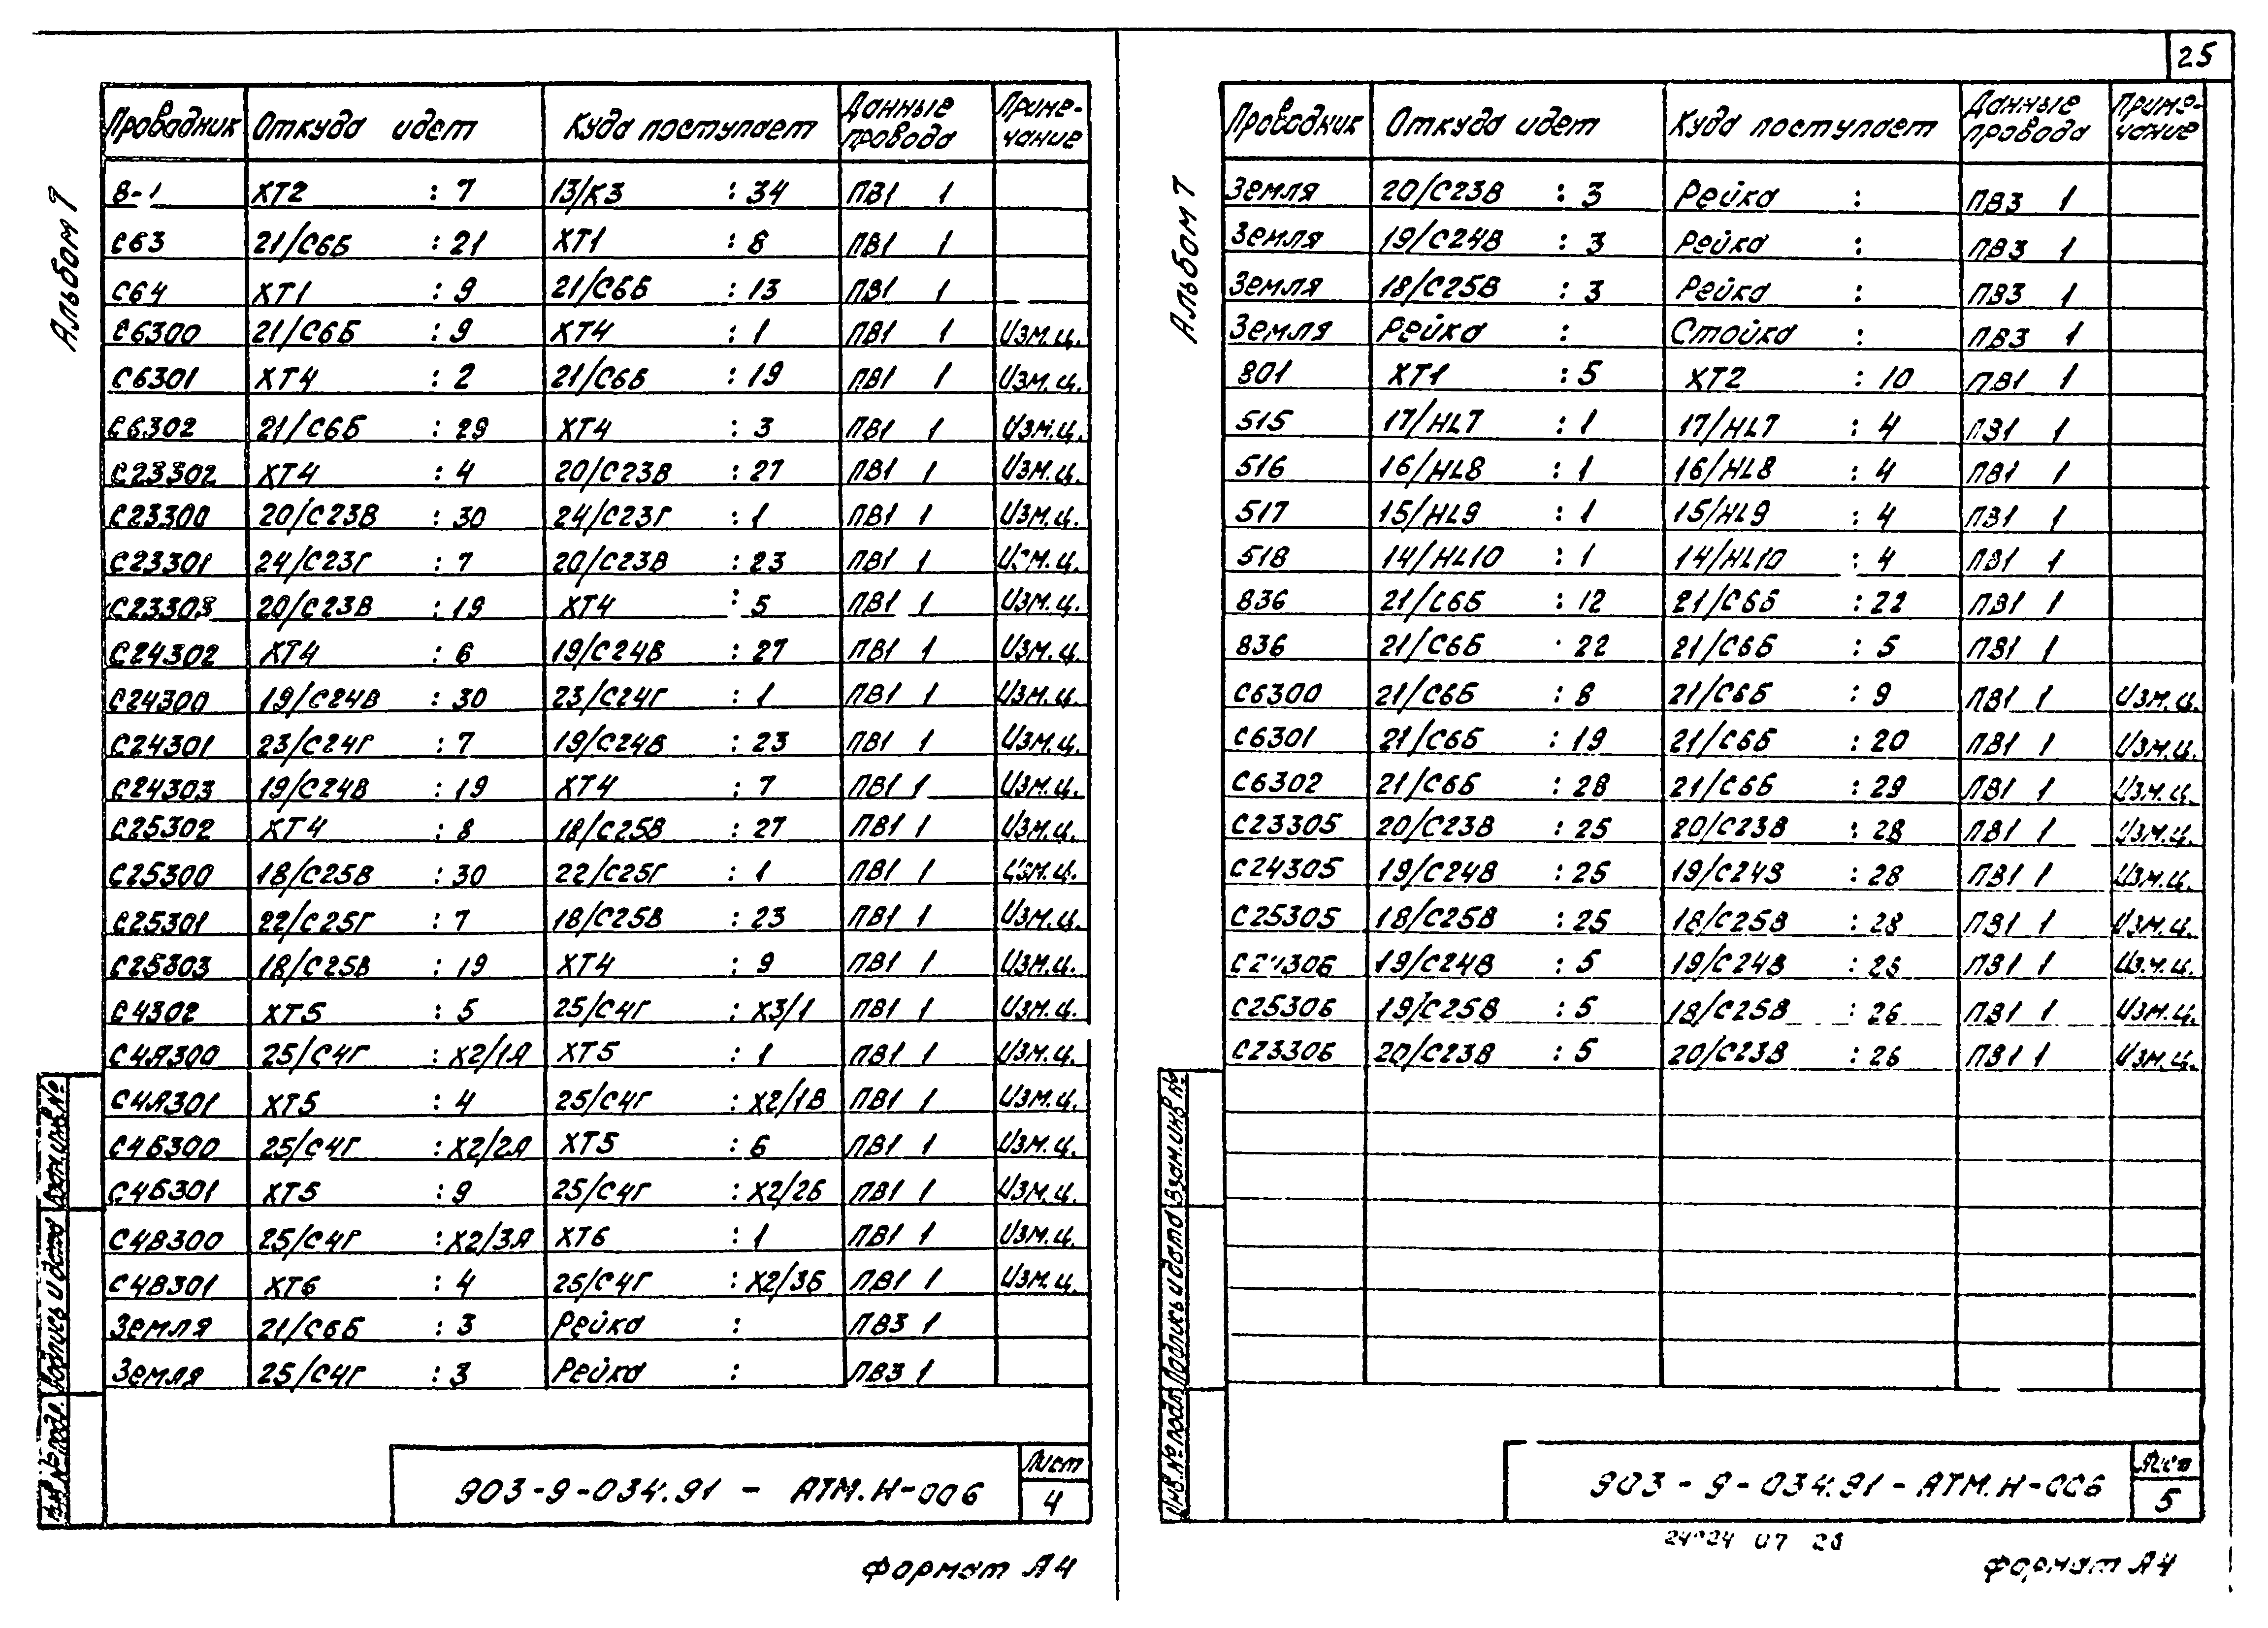 25
Альбом 7
Проводник Откуда идет Куда поступает Данные провода Приме-чание
8-1 ХТ2 : 7 13/К3 : 34 ПВ1 1
С63 21/С6Б : 21 ХТ1 : 8 ПВ1 1
С64 ХТ1 : 9 21/С6Б : 13 ПВ1 1
С6300 21/С6Б : 9 ХТ4 : 1 ПВ1 1 Изм.ц.
С6301 ХТ4 : 2 21/С6Б : 19 ПВ1 1 Изм.ц.
С6302 21/С6Б : 29 ХТ4 : 3 ПВ1 1 Изм.ц.
С23302 ХТ4 : 4 20/С23В : 27 ПВ1 1 Изм.ц.
С23300 20/С23В : 30 24/С23Г : 1 ПВ1 1 Изм.ц.
С23301 24/С23Г : 7 20/С23В : 23 ПВ1 1 Изм.ц.
С23303 20/С23В : 19 ХТ4 : 5 ПВ1 1 Изм.ц.
С24302 ХТ4 : 6 19/С24В : 27 ПВ1 1 Изм.ц.
С24300 19/С24В : 30 23/С24Г : 1 ПВ1 1 Изм.ц.
С24301 23/С24Г : 7 19/С24В : 23 ПВ1 1 Изм.ц.
С24303 19/С24В : 19 ХТ4 : 7 ПВ1 1 Изм.ц.
С25302 ХТ4 : 8 18/С25В : 27 ПВ1 1 Изм.ц.
С25300 18/С25В : 30 22/С25Г : 1 ПВ1 1 Изм.ц.
С25301 22/С25Г : 7 18/С25В : 23 ПВ1 1 Изм.ц.
С25303 18/С25В : 19 ХТ4 : 9 ПВ1 1 Изм.ц.
С4302 ХТ5 : 5 25/С4Г : Х3/1 ПВ1 1 Изм.ц.
С4А300 25/С4Г : Х2/1А ХТ5 : 1 ПВ1 1 Изм.ц.
С4А301 ХТ5 : 4 25/С4Г : Х2/1В ПВ1 1 Изм.ц.
С4Б300 25/С4Г : Х2/2А ХТ5 : 6 ПВ1 1 Изм.ц.
С4Б301 ХТ5 : 9 25/С4Г : Х2/2Б ПВ1 1 Изм.ц.
С4В300 25/С4Г : Х2/3А ХТ6 : 1 ПВ1 1 Изм.ц.
С4В301 ХТ6 : 4 25/С4Г : Х2/3Б ПВ1 1 Изм.ц.
Земля 21/С6Б : 3 Рейка : ПВ3 1
Земля 25/С4Г : 3 Рейка : ПВ3 1
Подпись и дата
903-9-034.91 - АТМ.Н-006
Лист
4
Формат А4
Альбом 7
Проводник Откуда идет Куда поступает Данные провода Приме-чание
Земля 20/С23В : 3 Рейка : ПВ3 1
Земля 19/С24В : 3 Рейка : ПВ3 1
Земля 18/С25В : 3 Рейка : ПВ3 1
Земля Рейка : Стойка : ПВ3 1
801 ХТ1 : 5 ХТ2 : 10 ПВ1 1
515 17/HL7 : 1 17/HL7 : 4 ПВ1 1
516 16/HL8 : 1 16/HL8 : 4 ПВ1 1
517 15/HL9 : 1 15/HL9 : 4 ПВ1 1
518 14/HL10 : 1 14/HL10 : 4 ПВ1 1
836 21/С6Б : 12 21/С6Б : 22 ПВ1 1
836 21/С6Б : 22 21/С6Б : 5 ПВ1 1
С6300 21/С6Б : 8 21/С6Б : 9 ПВ1 1 Изм.ц.
С6301 21/С6Б : 19 21/С6Б : 20 ПВ1 1 Изм.ц.
С6302 21/С6Б : 28 21/С6Б : 29 ПВ1 1 Изм.ц.
С23305 20/С23В : 25 20/С23В : 28 ПВ1 1 Изм.ц.
С24305 19/С24В : 25 19/С24В : 28 ПВ1 1 Изм.ц.
С25305 18/С25В : 25 18/С25В : 28 ПВ1 1 Изм.ц.
19/С24В : 5 19/С24В : 26 ПВ1 1 Изм.ц.
С25306 19/С25В : 5 18/С25В : 26 ПВ1 1 Изм.ц.
С23306 20/С23В : 5 20/С23В : 26 ПВ1 1 Изм.ц.
Инв.№ подл. Подпись и дата Взам.инв №
903-9-034.91-АТМ.Н-006
Лист
5
07
Формат А4